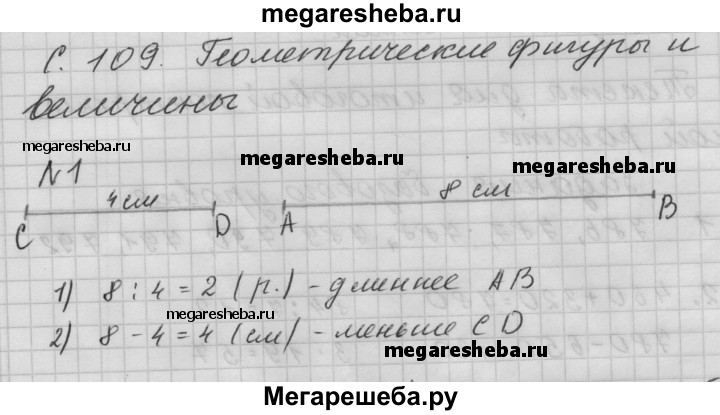 megaresheba.ru
С. 109. Геометрические фигуры и
величины
megaresheba.ru
megaresheba.ru
megaresheba.ru
N 1
4 см
8 см
C D A B
1) 8 : 4 = 2 (р.) - длиннее AB
megaresheba.ru
2) 8 - 4 = 4 (см) - меньше CD
megaresheba.ru
Мегарешеба.ру